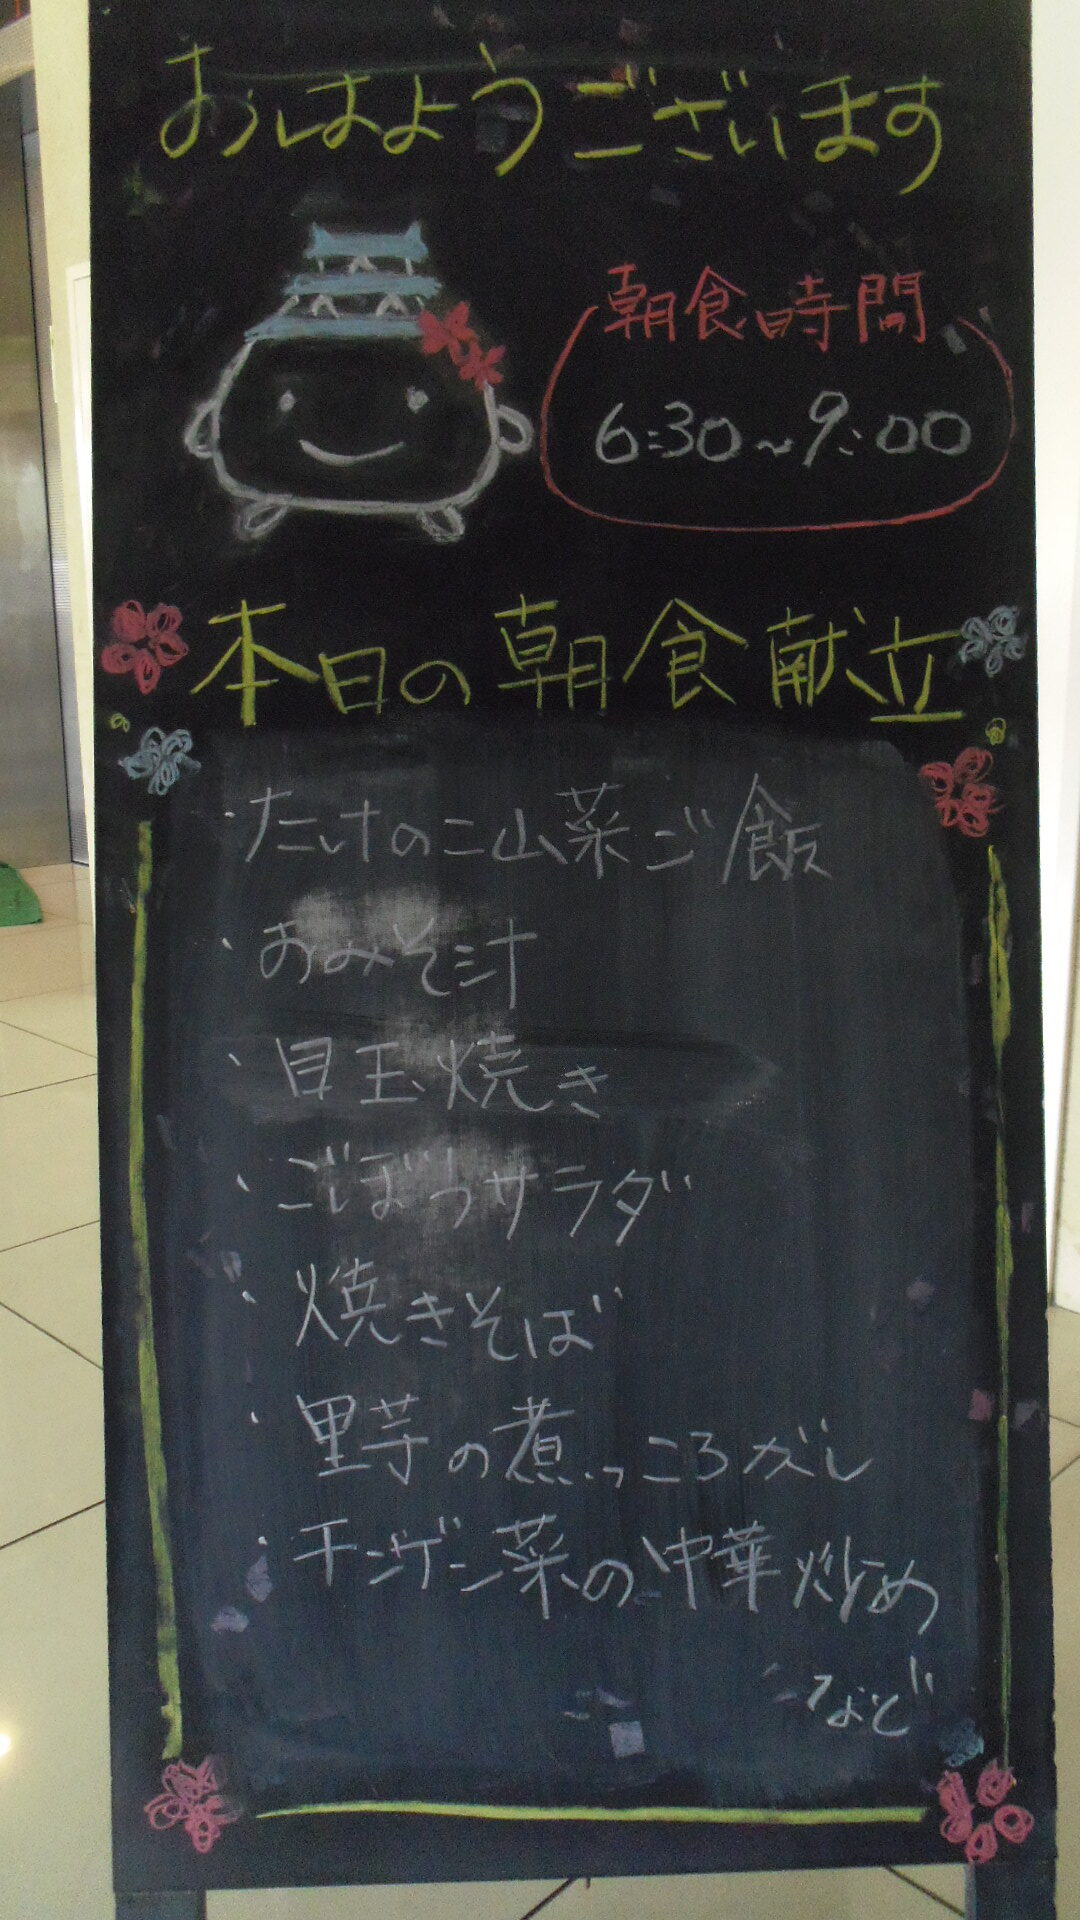 おはようございます
朝食時間
6:30～9:00
本日の朝食献立
・たけのこ山菜ご飯
・おみそ汁
・目玉焼き
・ごぼうサラダ
・焼きそば
・里芋の煮っころがし
・チンゲン菜の中華炒め
など